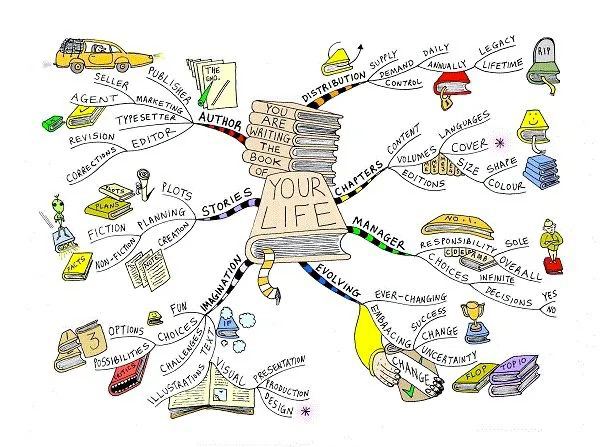 YOU
ARE
WRITING
THE
BOOK
OF
YOUR
LIFE
DISTRIBUTION
SUPPLY
DEMAND
CONTROL
DAILY
ANNUALLY
LEGACY
LIFETIME
RIP
CHAPTERS
CONTENT
VOLUMES
EDITIONS
LANGUAGES
COVER
SIZE
SHAPE
COLOUR
MANAGER
NO. 1.
RESPONSIBILITY
SOLE
OVERALL
CHOICES
INFINITE
DECISIONS
YES
NO
EVOLVING
EVER-CHANGING
EMBRACING
SUCCESS
CHANGE
UNCERTAINTY
CHANGE
FLOP
TOP 10
IMAGINATION
FUN
CHOICES
OPTIONS
POSSIBILITIES
3
CHALLENGES
TEXT
ILLUSTRATIONS
VISUAL
PRESENTATION
PRODUCTION
DESIGN
STORIES
PLOTS
PLANNING
CREATION
FICTION
NON-FICTION
FACTS
PLANS
FACTS
AUTHOR
THE
END.
PUBLISHER
SELLER
MARKETING
AGENT
TYPESETTER
EDITOR
REVISION
CORRECTIONS